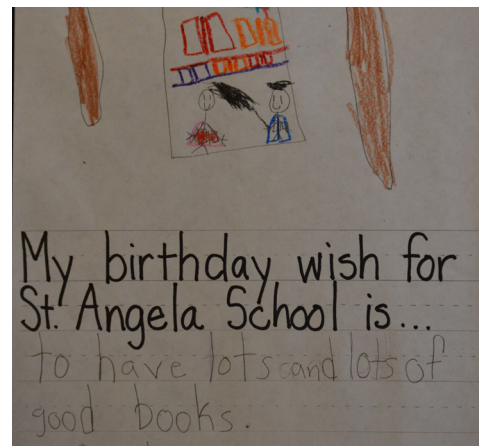 My birthday wish for
St. Angela School is...
to have lots and lots of
good books.